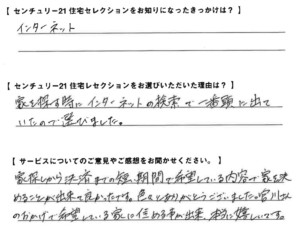 【 センチュリー21住宅セレクションをお知りになったきっかけは？ 】
インターネット
【 センチュリー21住宅レセクションをお選びいただいた理由は？ 】
家を探す時にインターネットの検索で一番頭に出て
いたので選びました。
【 サービスについてのご意見やご感想をお聞かせください。 】
家探しから決済までの短い期間で希望している内容で家を決
めることが出来て良かったです。色々とありがとうございました。宮川さん
のおかげで希望している家に住める事が出来、本当に嬉しいです。